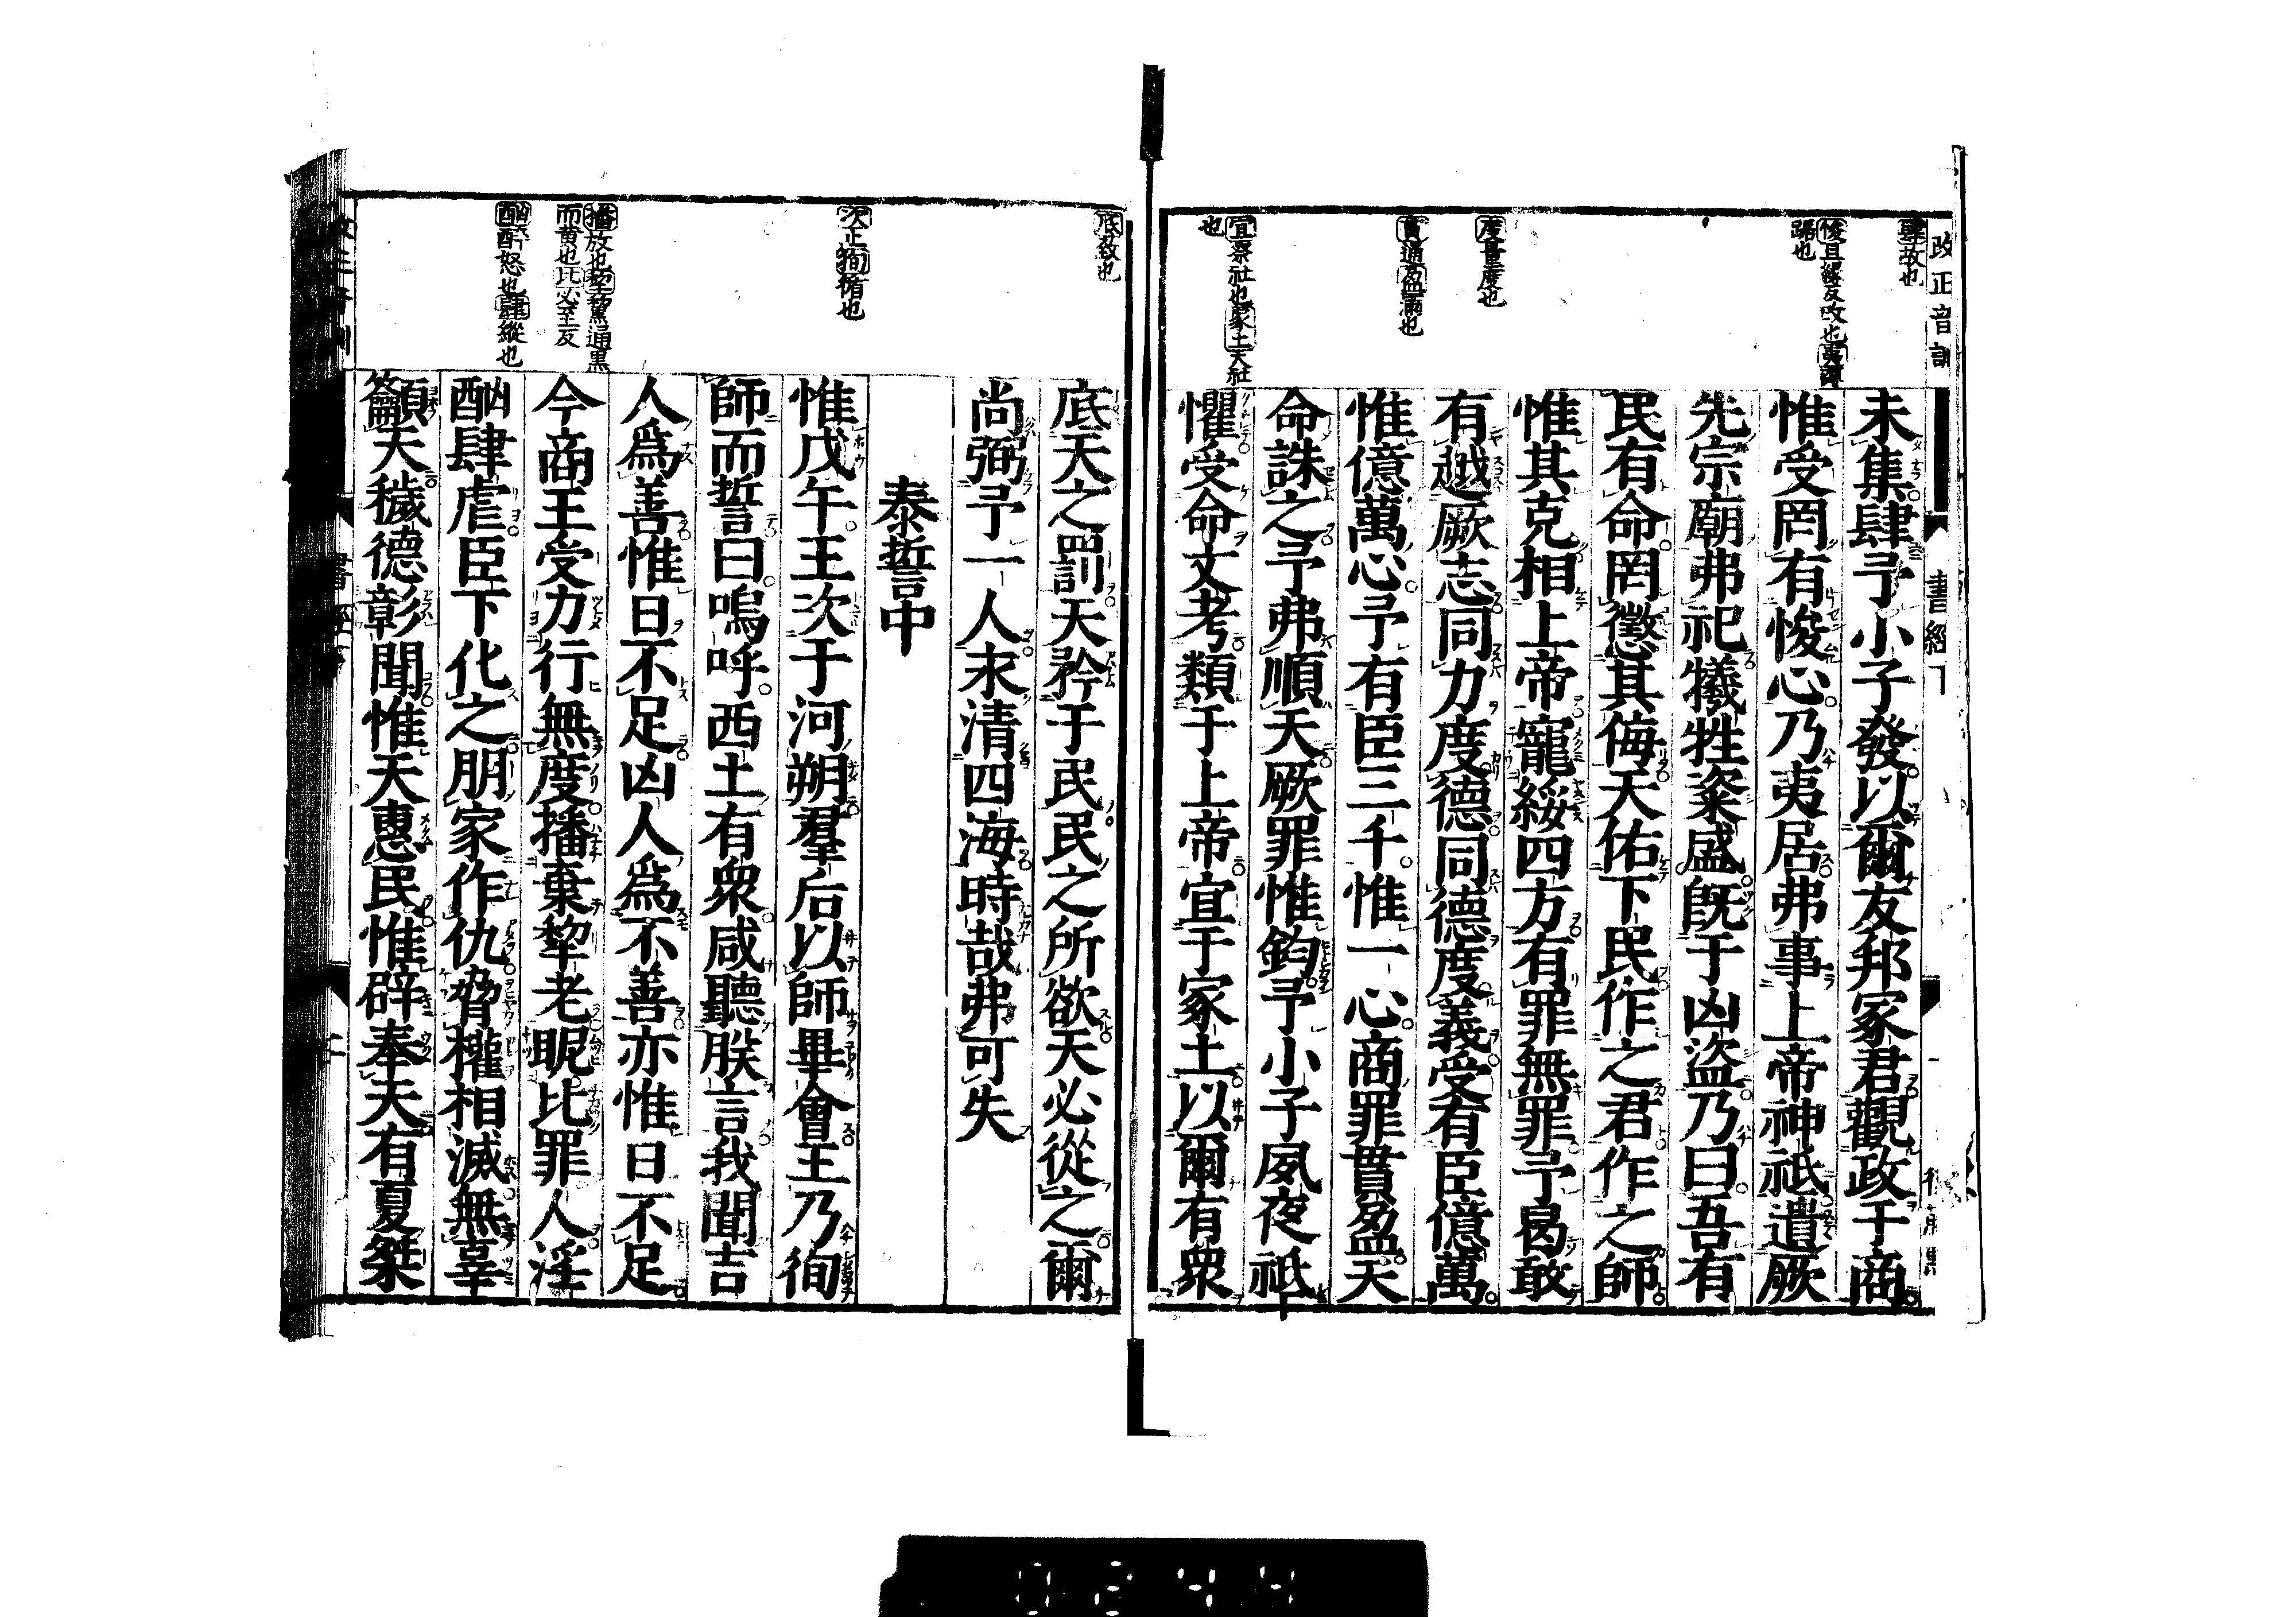 改正音訓
書經下
肆故也
悛且緣反改也夷蹲
踞也
度量度也
貫通盈滿也
宜祭社也冢土大社
也
未集肆予小子發以爾友邦冢君觀政于商
惟受罔有悛心乃夷居弗事上帝神祇遺厥
先宗廟弗祀犧牲粢盛既于凶盜乃曰吾有
民有命罔懲其侮天佑下民作之君作之師
惟其克相上帝寵綏四方有罪無罪予曷敢
有越厥志同力度德同德度義受有臣億萬
惟億萬心予有臣三千惟一心商罪貫盈天
命誅之予弗順天厥罪惟鈞予小子夙夜祗
懼受命文考類于上帝宜于冢土以爾有眾
底致也
次正徇循也
播放也犂黧通黒
而黄也比必至反
酗酔怒也肆縱也
底天之罰天矜于民民之所欲天必從之爾
尚弼予一人永清四海時哉弗可失
泰誓中
惟戊午王次于河朔羣后以師畢會王乃徇
師而誓曰嗚呼西土有衆咸聽朕言我聞吉
人爲善惟日不足凶人爲不善亦惟日不足
今商王受力行無度播棄犂老昵比罪人淫
酗肆虐臣下化之朋家作仇脅權相滅無辜
籲天穢德彰聞惟天惠民惟辟奉天有夏桀